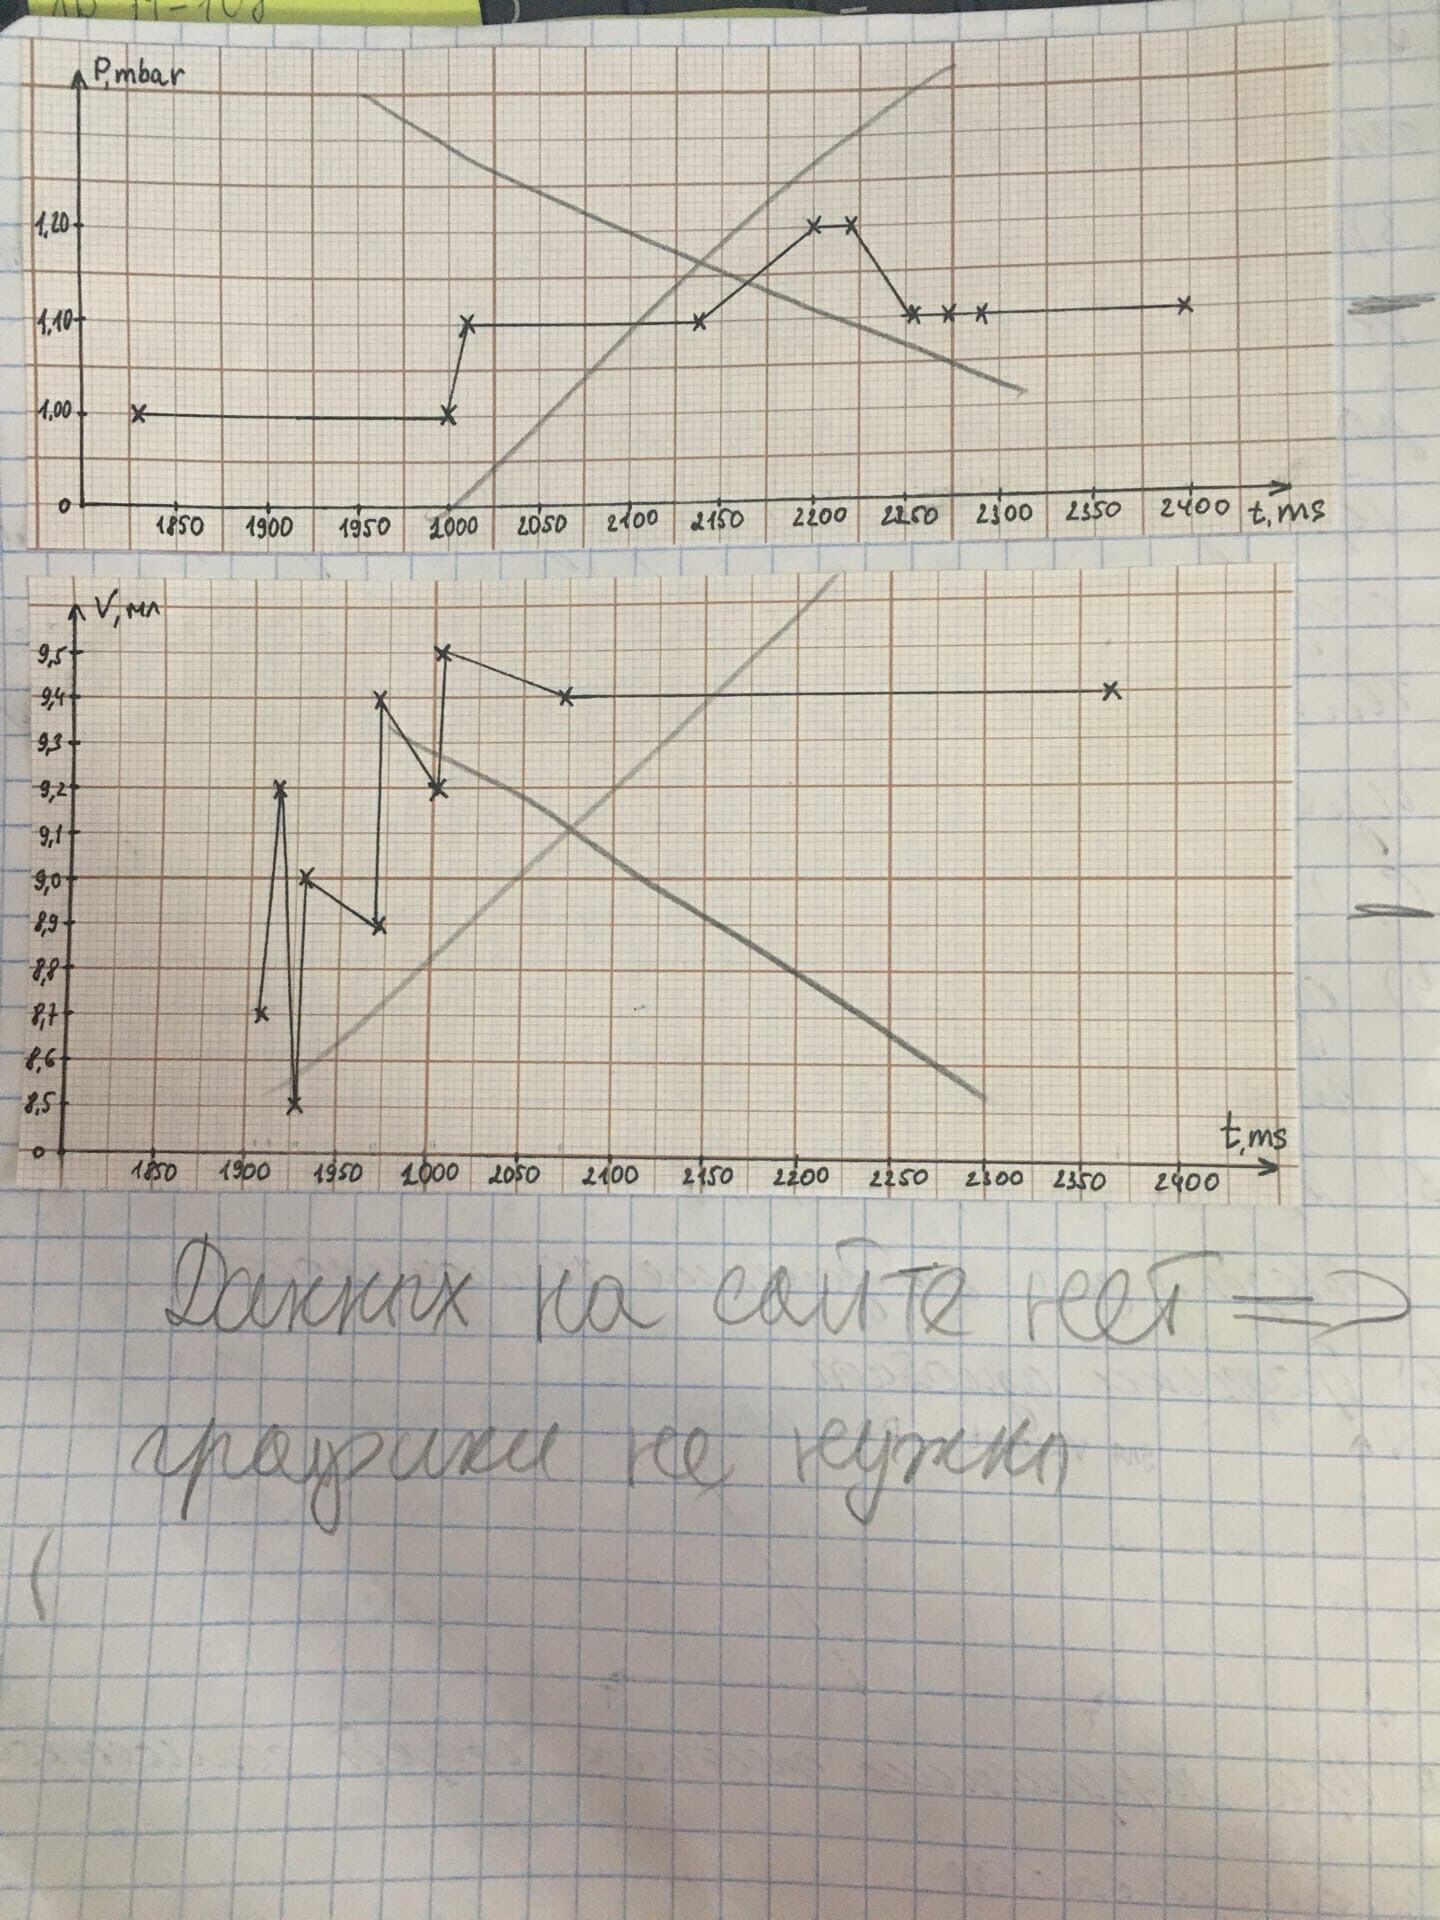 P,mbar
1,20
1,10
1,00
0
1850 1900 1950 2000 2050 2100 2150 2200 2250 2300 2350 2400 t,ms
V,мл
9,5
9,4
9,3
9,2
9,1
9,0
8,9
8,8
8,7
8,6
8,5
t,ms
0
1850 1900 1950 2000 2050 2100 2150 2200 2250 2300 2350 2400
Данных на сайте нет =>
графики не нужны
(